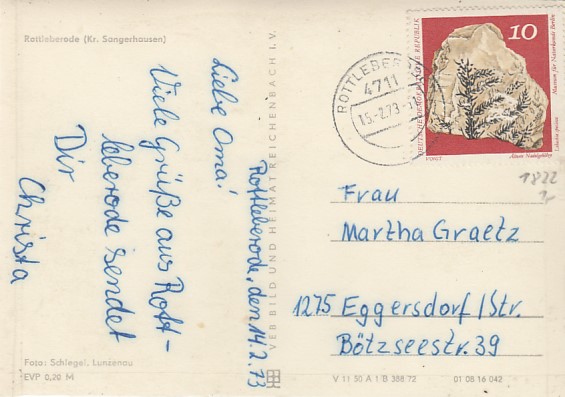 Rottleberode (Kr. Sangerhausen)
Rottleberode, den 14.2.73
Liebe Oma!
Viele Grüße aus Rott-
leberode sendet
Dir
Christa
Foto: Schlegel, Lunzenau
EVP 0,20 M
VEB BILD UND HEIMAT REICHENBACH I. V.
V 11 50 A 1 B 388 72
01 08 16 042
4711
15.-2.73
DEUTSCHE DEMOKRATISCHE REPUBLIK
10
Museum für Naturkunde Berlin
VOIGT
1822
Frau
Martha Graetz
1275 Eggersdorf/Str.
Bötzseestr. 39